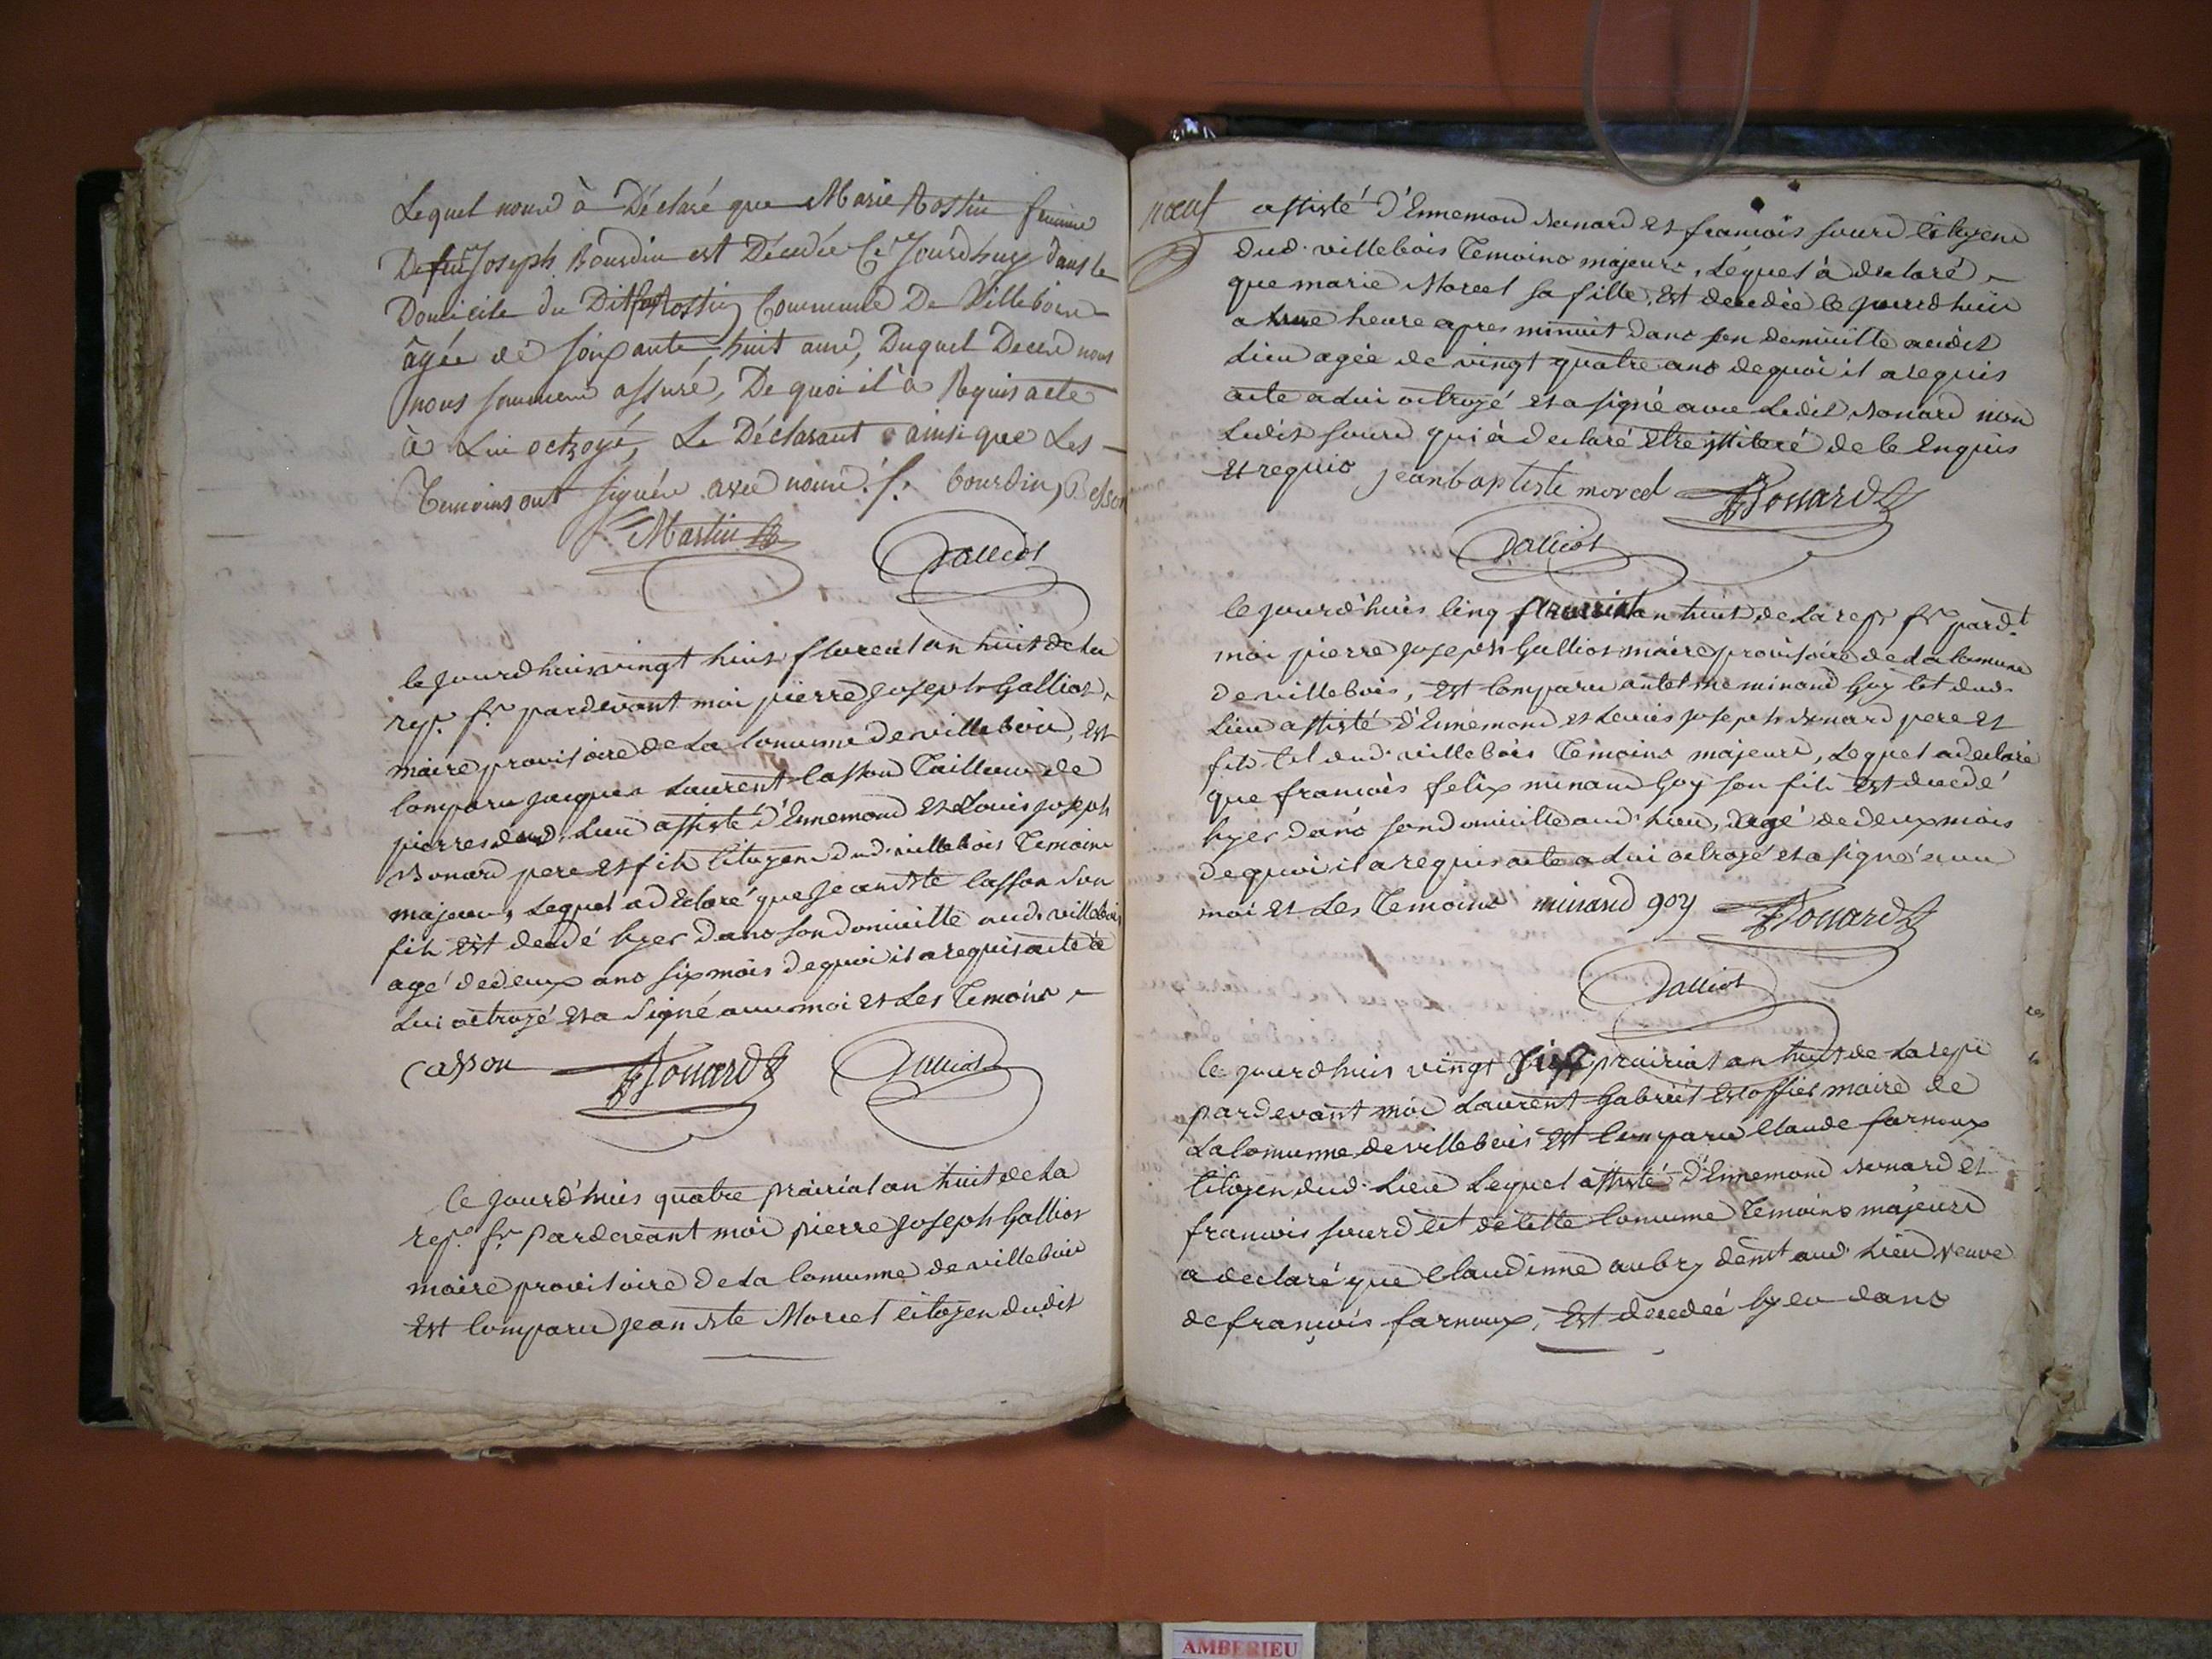 Lequel nous à Déclaré que Marie Rostin femme
De feu Joseph Bourdin est Décedée Ce Jourdhuy dans le
Domicile du Dit Rostin Commune De Villebois
âgée de soixante huit ans, Duquel Deces nous
nous sommes assuré, De quoi il à Requis acte
à Lui octroyé, Le Déclarant ainsi que Les
Temoins ont signés avec nous. f. bourdin, Besson
Martin Galliot
le jourd'huis vingt huit floreal an huit de la
rep.e fr. pardevant moi pierre joseph Galliot
maire provisoire de La Comunne de villebois, Est
Comparu jacques Laurent Casson Tailleur de
pierres dud. Lieu assisté d'Ennemond et Louis joseph
Bonard pere et fils Citoyens dud. villebois Temoins
majeurs, Lequel a déclaré que jean Bte Casson son
fils est decedé hyer Dans son domicille aud. villebois
agé de deux ans six mois de quoi il a requis acte à
Lui octroyé et a Signé avec moi et Les Temoins
Casson Bonard Galliot
le jourd'huis quatre prairial an huit de La
rep.e fr. Pardevant moi pierre joseph Galliot
maire provisoire de La Comunne de villebois
Est Comparu jean Bte Morcel Citoyen dudit
neuf
assisté d'Ennemond Bonard et francois sourd Citoyens
dud. villebois Temoins majeurs, Lequel à declaré
que marie Morcel sa fille, Est decedée le jourd huis
a une heure apres minuit dans son domicille audit
Lieu agée de vingt quatre ans de quoi il a requis
acte a Lui octroyé et a signé avec Ledit Bonard non
Ledit sourd qui à declaré Etre illiteré de ce Enquis
et requis jean baptiste morcel Bonard
Galliot
le jourd'huis Cinq prairial an huit de La rep. fr. pard.t
moi pierre joseph Galliot maire provisoire de La Comune
de villebois, Est Comparu antelme minand Goy Cit dud.
Lieu assisté d'Ennemond et Louis joseph Bonard pere et
fils Cit dud. villebois Temoins majeurs, Lequel a declaré
que francois felix minand Goy son fils est decedé
hyer dans son domicille aud. Lieu, agé de deux mois
de quoi il a requis acte a Lui octroyé et a signé avec
moi et Les Temoins minand goy Bonard
Galliot
le jourd'huis vingt six prairial an huit de La rep.
pardevant moi Laurent Gabriel Estoffier maire de
La Comunne de villebois Est Comparu Claude farnoux
Citoyen dud. Lieu Lequel assisté d'Ennemond Bonard et
francois sourd Cit de Cette Comunne Temoins majeurs
a declaré que Claudinne aubry dem.t aud. Lieu veuve
de françois farnoux, Est decedée hyer dans
AMBERIEU